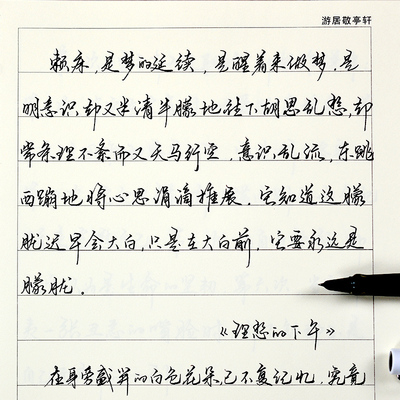 游居敬亭轩
赖床，是梦的延续，是醒着来做梦，是
明意识却又半清半朦地往下胡思乱想，却
常条理不紊而又天马行空，意识乱流，东跳
西蹦地将心思涓滴推展。它知道这朦
胧迟早会大白，只是在大白前，它要永远是
朦胧。
《理想的下午》
在身旁截斑的白色花朵，已不复记忆，究竟